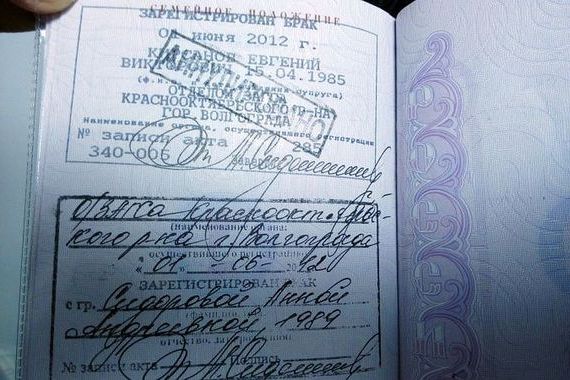 СЕМЕЙНОЕ ПОЛОЖЕНИЕ
ЗАРЕГИСТРИРОВАН БРАК
ИЮНЯ 2012 Г.
ЕВГЕНИЙ
15.04.1985
ОТДЕЛ
КРАСНООКТЯБРЬСКОГО Р-НА
ГОР. ВОЛГОГРАДА
Наименование органа, осуществившего регистрацию
№ записи акта 285
340-006
О/ЗАГСа Краснооктябрьс-
кого р-на г. Волгограда
(наименование органа,
осуществившего регистрацию)
"01" - 06 - 2012
ЗАРЕГИСТРИРОВАН БРАК
с гр. Сидоровой Анной
Андреевной, 1989
отчество, дата рождения
№ записи акта Подпись